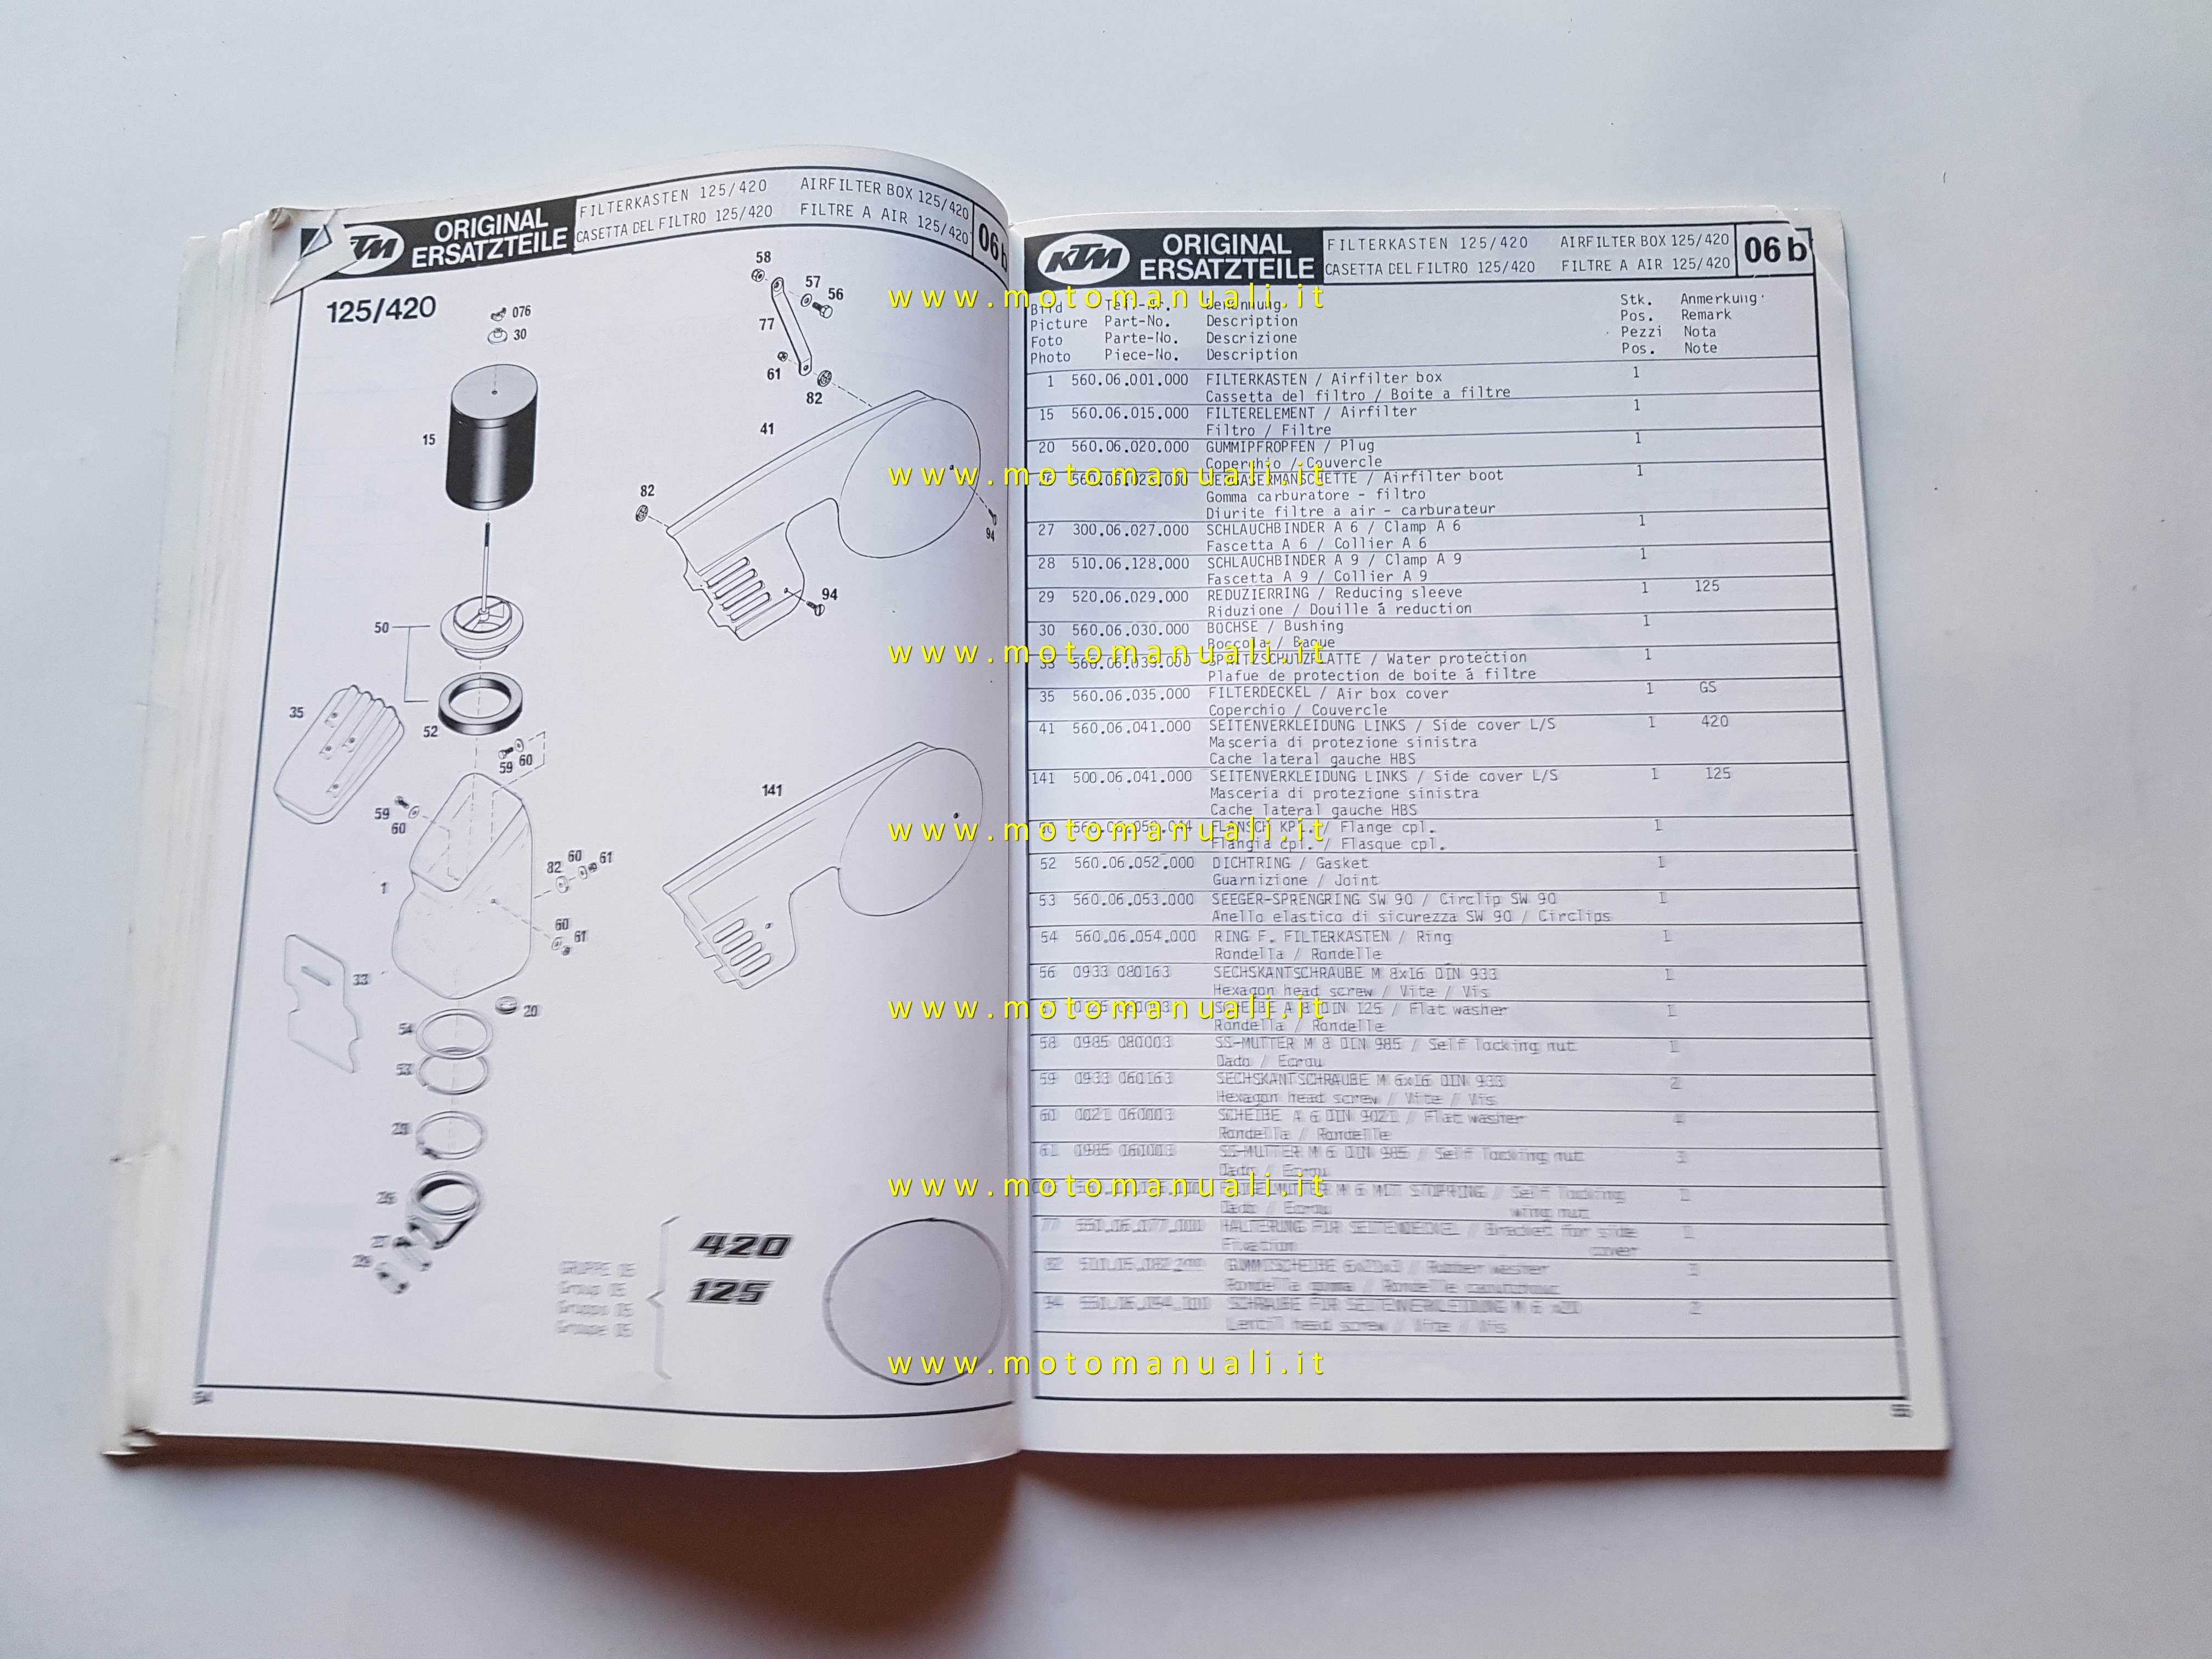 KTM ORIGINAL ERSATZTEILE
FILTERKASTEN 125/420 AIRFILTER BOX 125/420
CASETTA DEL FILTRO 125/420 FILTRE A AIR 125/420
06 b
125/420
076
30
15
50
52
35
59 60
59
60
1
82 60 61
60
61
33
20
54
53
29
26
27
28
58
57
56
77
61
82
41
82
94
94
141
GRUPPE 05
Group 05
Gruppo 05
Groupe 05
420
125
54
KTM ORIGINAL ERSATZTEILE
FILTERKASTEN 125/420 AIRFILTER BOX 125/420
CASETTA DEL FILTRO 125/420 FILTRE A AIR 125/420
06 b
Bild Teil-Nr. Benennung Stk. Anmerkung
Picture Part-No. Description Pos. Remark
Foto Parte-No. Descrizione Pezzi Nota
Photo Piece-No. Description Pos. Note
1 560.06.001.000 FILTERKASTEN / Airfilter box 1
Cassetta del filtro / Boite a filtre
15 560.06.015.000 FILTERELEMENT / Airfilter 1
Filtro / Filtre
20 560.06.020.000 GUMMIPFROPFEN / Plug 1
Coperchio / Couvercle
/ Airfilter boot 1
Gomma carburatore - filtro
Diurite filtre a air - carburateur
27 300.06.027.000 SCHLAUCHBINDER A 6 / Clamp A 6 1
Fascetta A 6 / Collier A 6
28 510.06.128.000 SCHLAUCHBINDER A 9 / Clamp A 9 1
Fascetta A 9 / Collier A 9
29 520.06.029.000 REDUZIERRING / Reducing sleeve 1 125
Riduzione / Douille á reduction
30 560.06.030.000 BOCHSE / Bushing 1
Boccola / Bague
33 560.06.033.000 SPRITZSCHUTZPLATTE / Water protection 1
Plafue de protection de boite á filtre
35 560.06.035.000 FILTERDECKEL / Air box cover 1 GS
Coperchio / Couvercle
41 560.06.041.000 SEITENVERKLEIDUNG LINKS / Side cover L/S 1 420
Masceria di protezione sinistra
Cache lateral gauche HBS
141 500.06.041.000 SEITENVERKLEIDUNG LINKS / Side cover L/S 1 125
Masceria di protezione sinistra
Cache lateral gauche HBS
FLANSCH KPL. / Flange cpl. 1
Flangia cpl. / Flasque cpl.
52 560.06.052.000 DICHTRING / Gasket 1
Guarnizione / Joint
53 560.06.053.000 SEEGER-SPRENGRING SW 90 / Circlip SW 90 1
Anello elastico di sicurezza SW 90 / Circlips
54 560.06.054.000 RING F. FILTERKASTEN / Ring 1
Rondella / Rondelle
56 0933 080163 SECHSKANTSCHRAUBE M 8x16 DIN 933 1
Hexagon head screw / Vite / Vis
SCHEIBE A 8 DIN 125 / Flat washer 1
Rondella / Rondelle
58 0985 080003 SS-MUTTER M 8 DIN 985 / Self locking nut 1
Dado / Ecrou
59 0933 060163 SECHSKANTSCHRAUBE M 6x16 DIN 933 2
Hexagon head screw / Vite / Vis
60 0021 060003 SCHEIBE A 6 DIN 9021 / Flat washer 4
Rondella / Rondelle
61 0985 060003 SS-MUTTER M 6 DIN 985 / Self locking nut 3
Dado / Ecrou
M 6 MIT STOPRING / Self locking 1
Dado / Ecrou wing nut
77 551.06.077.000 HALTERUNG FÜR SEITENDECKEL / Bracket for side 1
Fixation cover
82 GUMMISCHEIBE / Rubber washer 3
Rondella gomma / Rondelle caoutchouc
94 SCHRAUBE FÜR SEITENVERKLEIDUNG M 6 x20 2
Lentil head screw / Vite / Vis
55
www.motomanuali.it
www.motomanuali.it
www.motomanuali.it
www.motomanuali.it
www.motomanuali.it
www.motomanuali.it
www.motomanuali.it